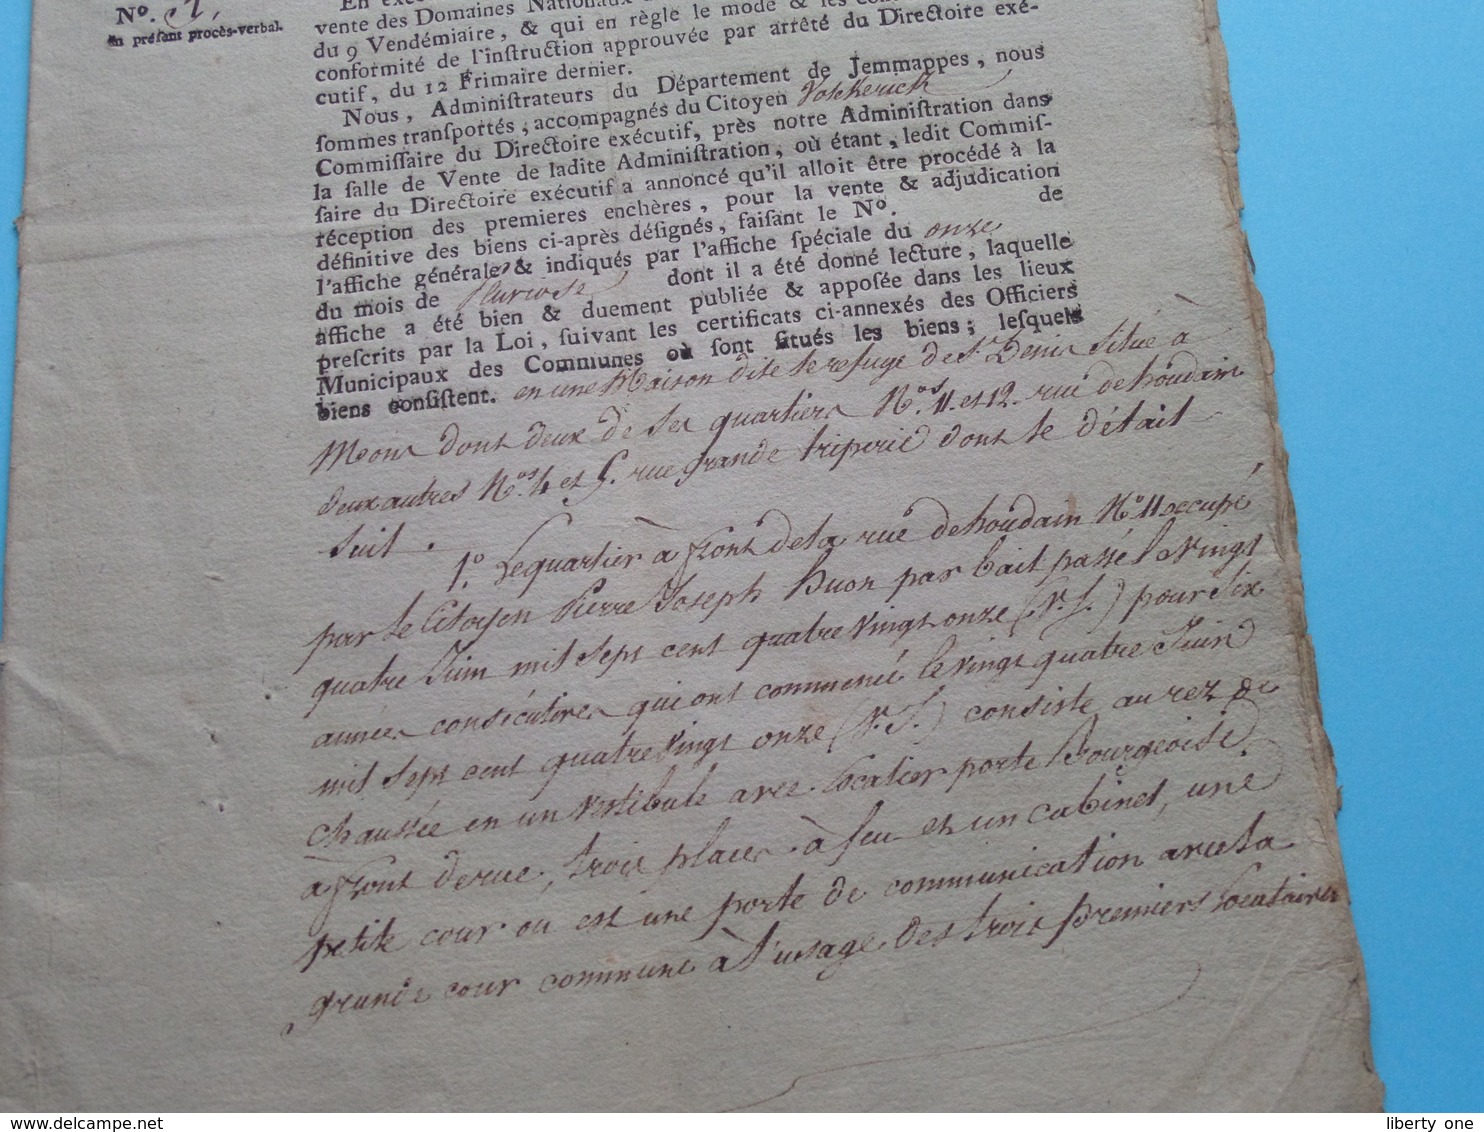 Nº.
du présent procès-verbal.
En exéc
vente des Domaines Nationaux
du 9 Vendémiaire, & qui en règle le mode & les con
conformité de l'instruction approuvée par arrêté du Directoire exé-
cutif, du 12 Frimaire dernier.
Nous, Administrateurs du Département de Jemmappes, nous
sommes transportés, accompagnés du Citoyen
Commissaire du Directoire exécutif, près notre Administration dans
la salle de Vente de ladite Administration, où étant, ledit Commis-
saire du Directoire exécutif a annoncé qu'il alloit être procédé à la
réception des premieres enchères, pour la vente & adjudication
définitive des biens ci-après désignés, faisant le Nº. de
l'affiche générale & indiqués par l'affiche spéciale du onze
du mois de pluviose dont il a été donné lecture, laquelle
affiche a été bien & duement publiée & apposée dans les lieux
prescrits par la Loi, suivant les certificats ci-annexés des Officiers
Municipaux des Communes où sont situés les biens; lesquels
biens consistent. en une Maison dite le refuge de St Denis située à
Mons dont deux de ses quartiers Nos. 11. et 12. rue de houdain
deux autres Nos. 4 et 5. rue grande triperie dont le détail
suit.
1º. Le quartier à front de la rue de houdain Nº 11 occupé
par le Citoyen Pierre Joseph Huon par bail passé le vingt
quatre Juin mil sept cent quatre vingt onze (V. S.) pour six
années consécutives qui ont commencé le vingt quatre Juin
mil sept cent quatre vingt onze (V. S.) consiste au rez de
chaussée en un vestibule avec escalier porte Bourgeoise
à front de rue, trois places à feu et un cabinet, une
petite cour ou est une porte de communication avec la
grande cour commune à l'usage des trois premiers locataires
liberty one